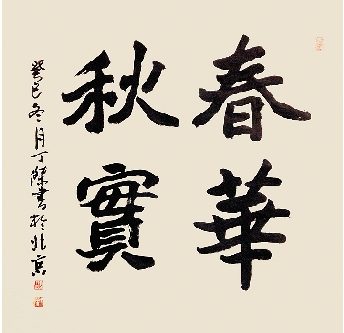 春華
秋實
癸巳冬月丁傑書於北京